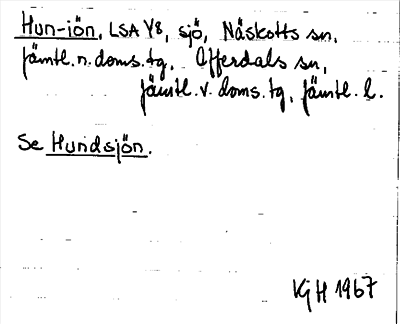 Hun-iön, LSA Y8, sjö, Näskotts sn,
Jämtl. n. doms. tg, Offerdals sn,
Jämtl. v. doms. tg, Jämtl. l.
Se Hundsjön.
KGH 1967